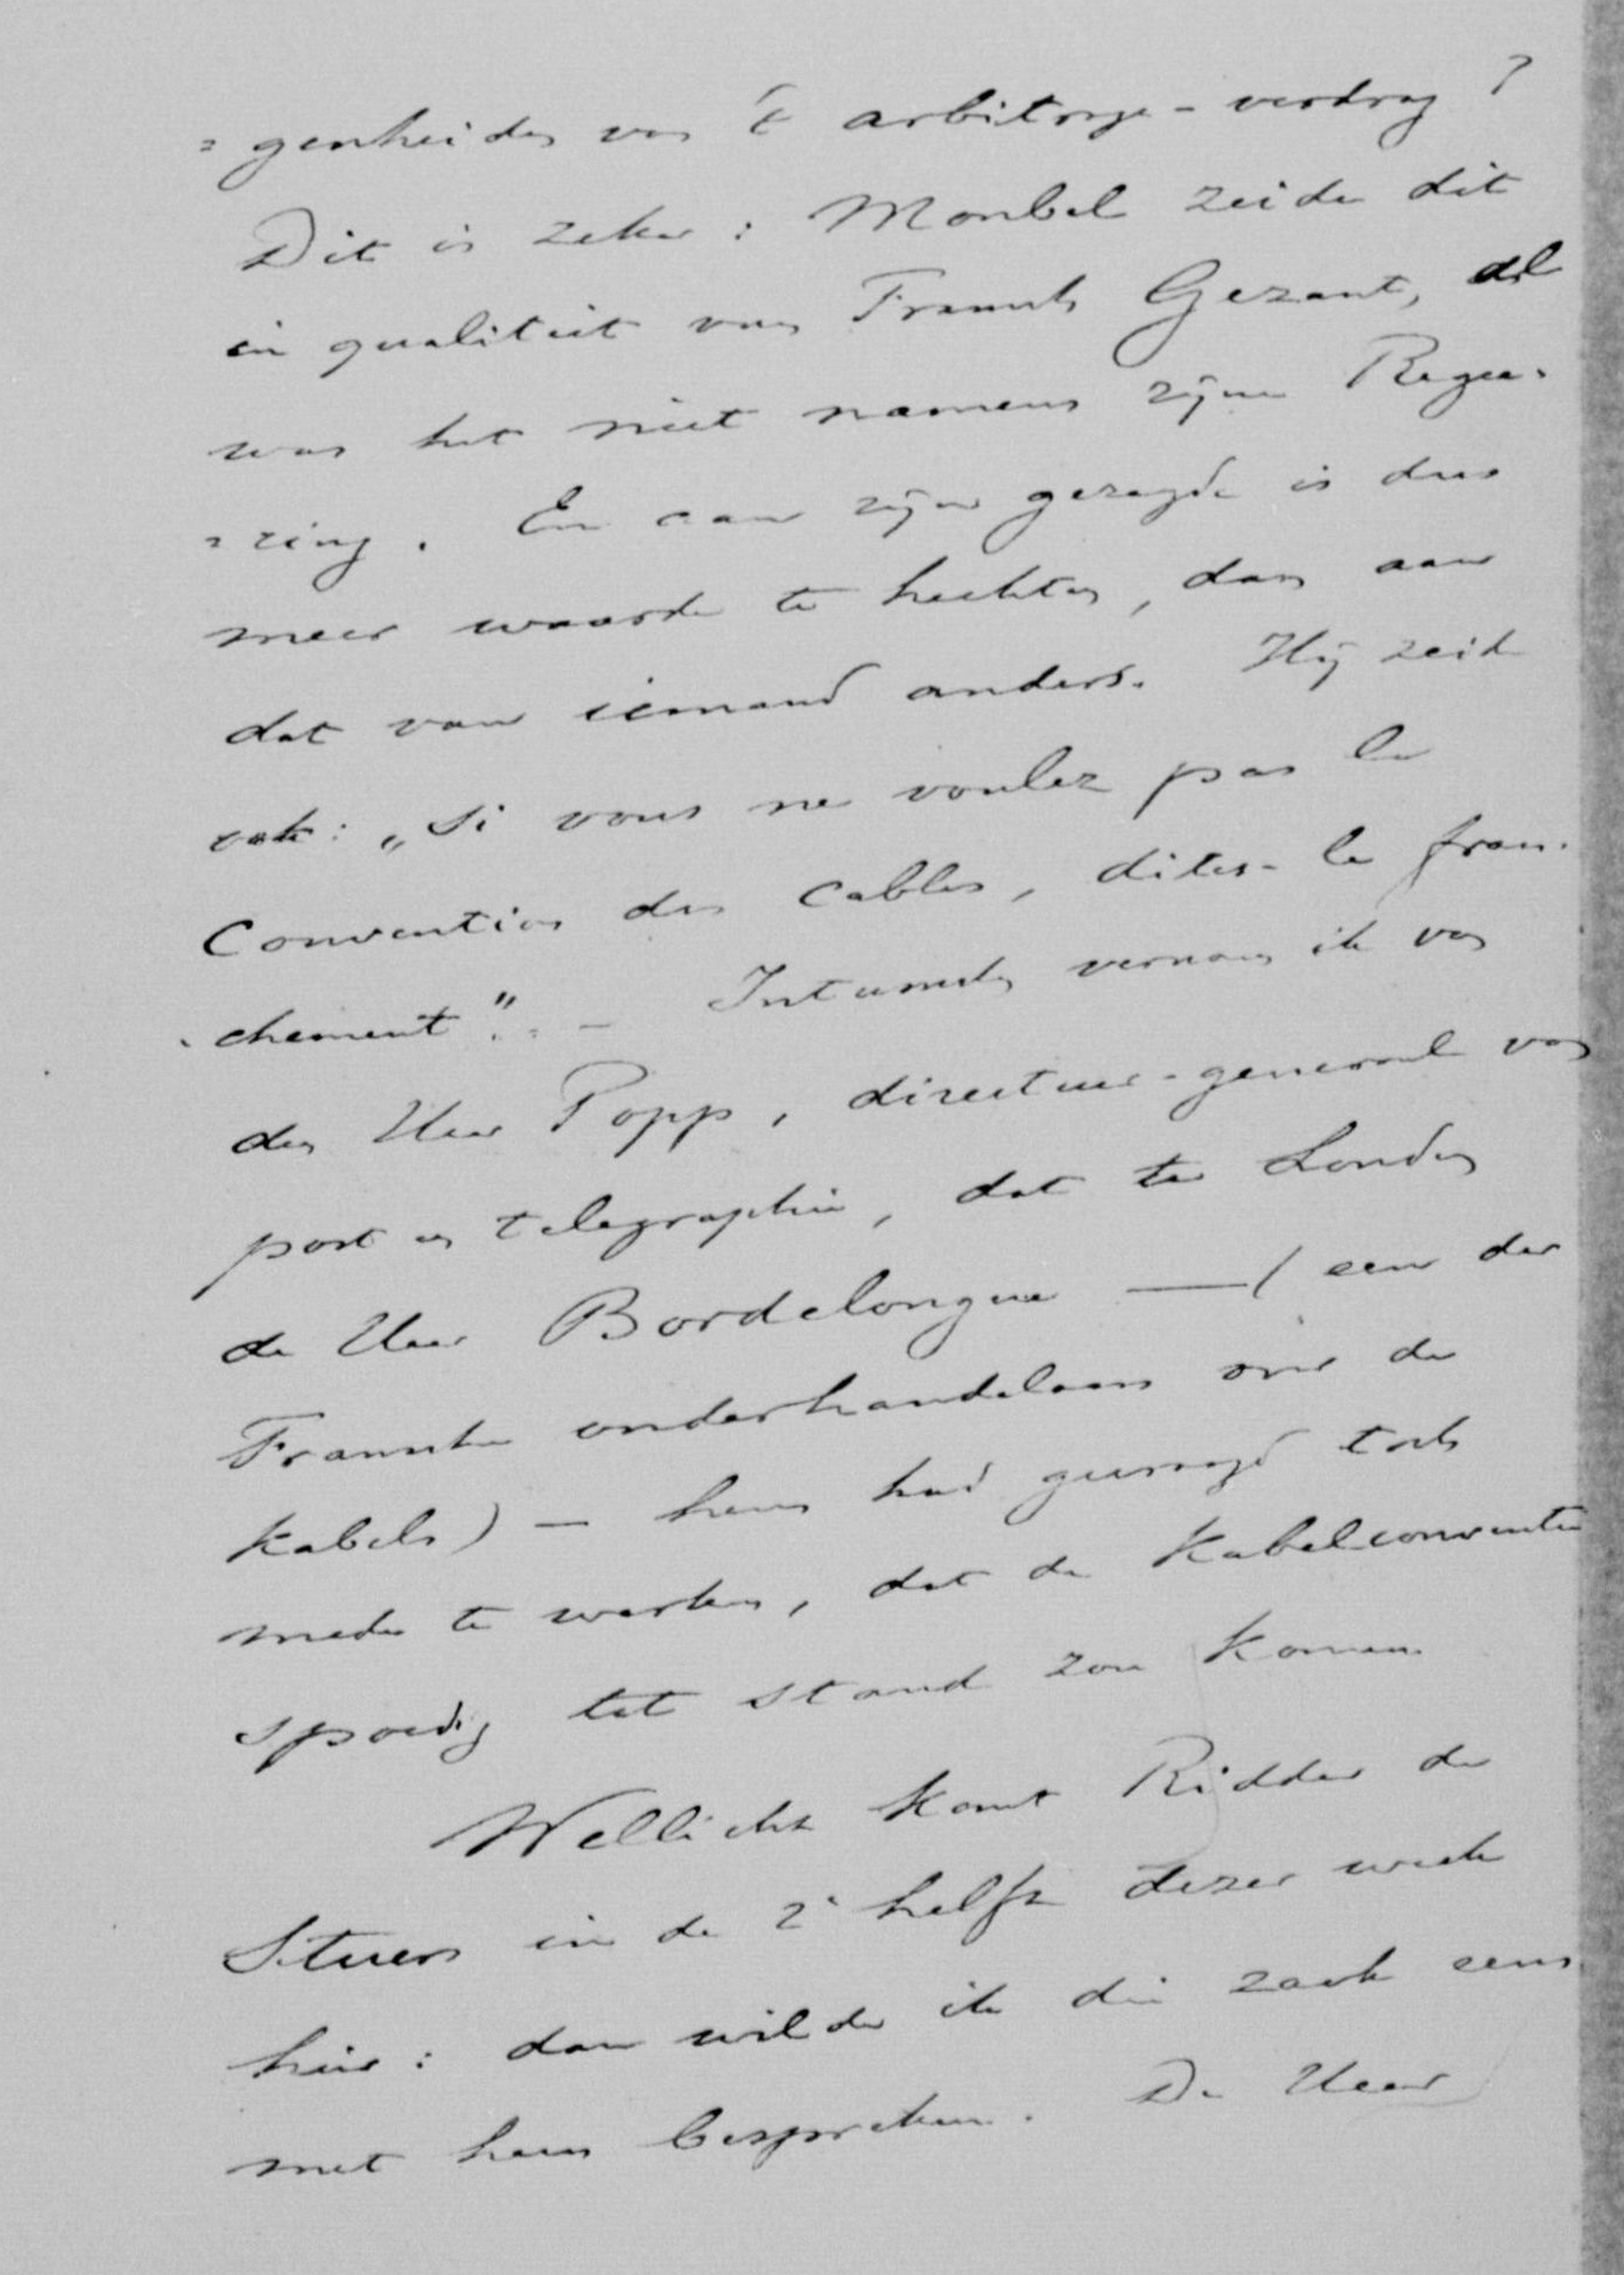 =genheiden van 't arbitrage-verdrag?
Dit is zeker: Monbel zeide dit
in qualiteit van Fransch Gezant, al
was het niet namens zijne Regee-
=ring. En aan zijn gezegde is dus
meer waarde te hechten, dan aan
dat van iemand anders. Hij zeide
ook: „Si vous ne voulez pas la
Convention des cables, dites-le fran-
-chement". - Intusschen vernam ik van
den Heer Popp, directeur-generaal van
post en telegraphie, dat te Londen
de Heer Bordelongue —(een der
Fransche onderhandelaars over de
kabels) — hem had gevraagd toch
mede te werken, dat de Kabelconventie
spoedig tot stand zou komen
Wellicht komt Ridder de
Stuers in de 2e helft dezer week
hier: dan wilde ik die zaak eens
met hem bespreken. De Heer